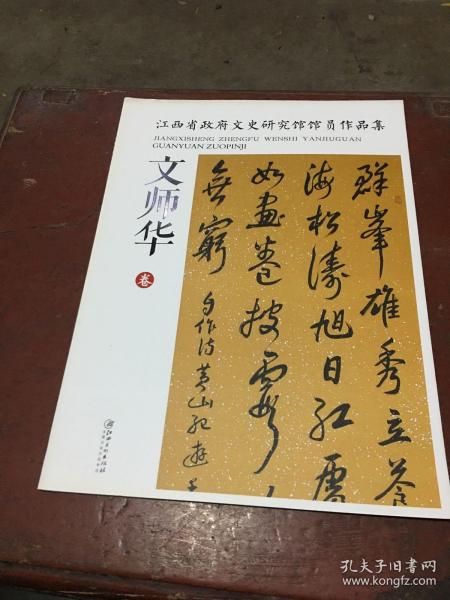 江西省政府文史研究馆馆员作品集
JIANGXISHENG ZHENGFU WENSHI YANJIUGUAN
GUANYUAN ZUOPINJI
文师华
卷
群峯雄秀立苍
海松涛旭日红层
如画卷披云
无穷
自作诗黄山纪游
江西美术出版社
孔夫子旧书网
www.kongfz.com